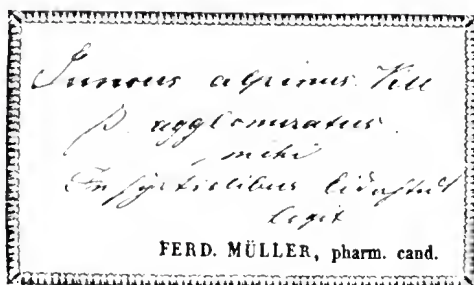 Juncus alpinus Vill
β. agglomeratus.
mihi
In syrtielibus
legit
FERD. MÜLLER, pharm. cand.